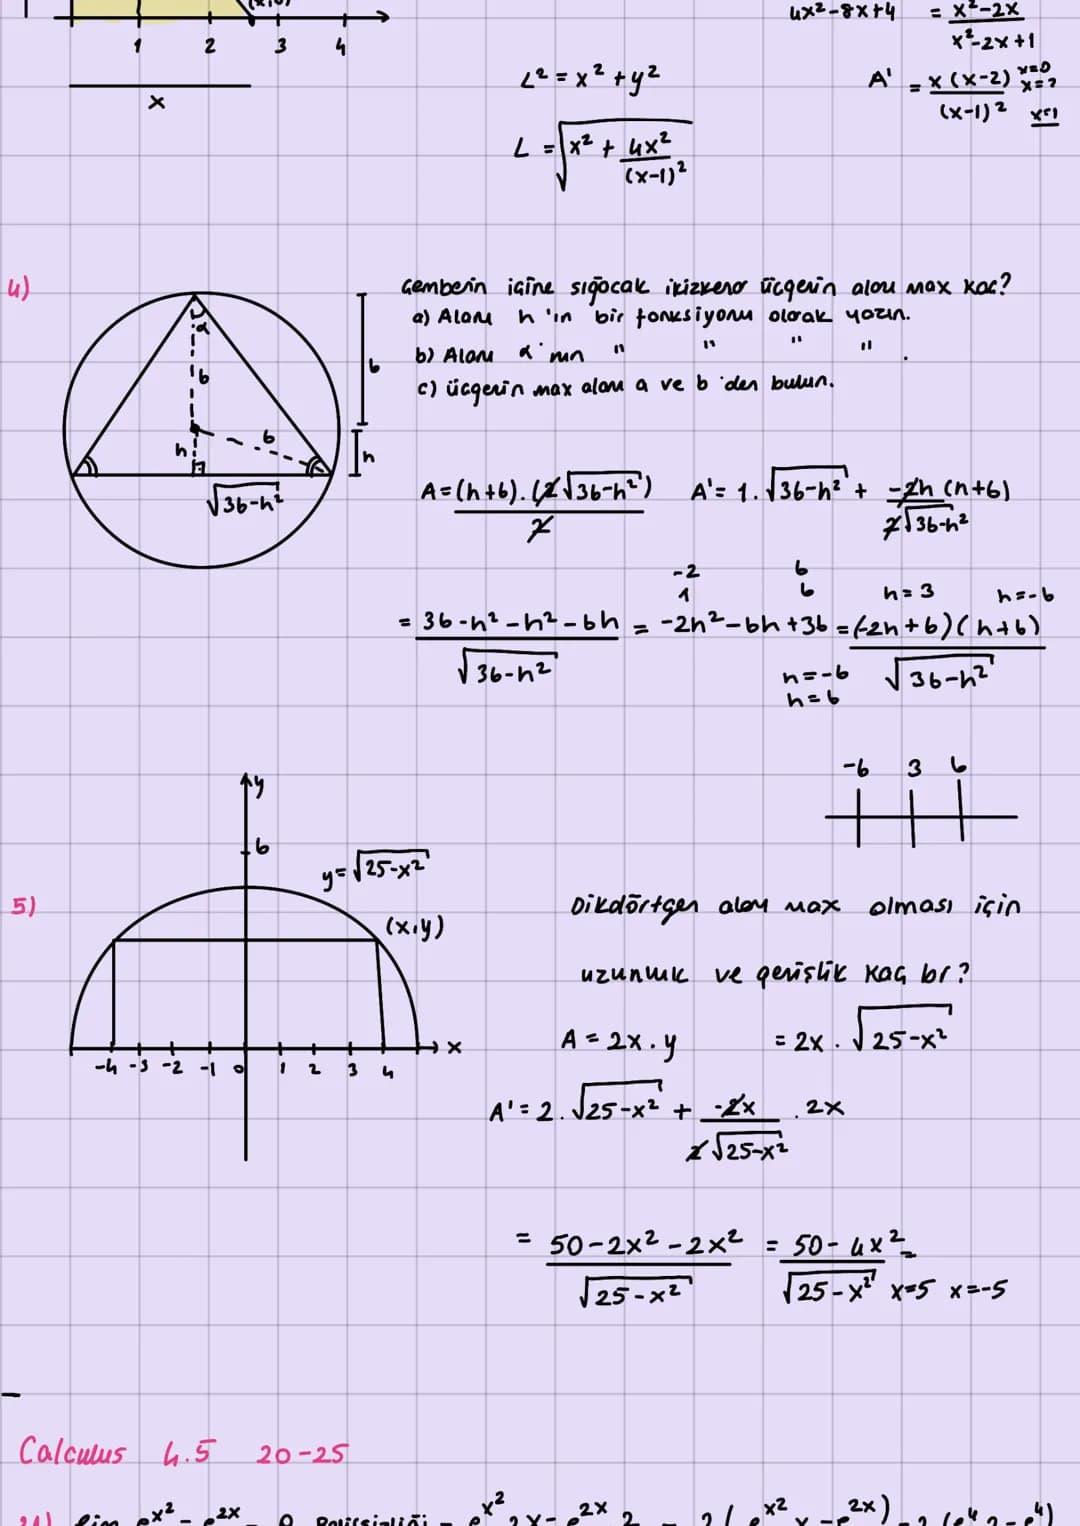 1 2 3 4
x
4x²-8x+4 = x²-2x / x²-2x+1
L² = x² + y²
A' = x(x-2) / (x-1)² x=0 x=2 x=1
L = √(x² + 4x² / (x-1)²)
4)
Çemberin içine sığacak ikizkenar üçgenin alanı max kaç?
a) Alanı h 'ın bir fonksiyonu olarak yazın.
b) Alanı α 'nın " " " " .
c) üçgenin max alanı a ve b 'den bulun.
α
6
6
h
6
h
√36-h²
A = (h+6).(2√36-h²) / 2 A' = 1.√36-h² + -2h (h+6) / 2√36-h²
-2 6
1 6 h=3 h=-6
= 36-h²-h²-6h / √36-h² = -2h²-6h+36 = (-2h+6)(h+6) / √36-h²
h=-6
h=6
-6 3 6
y
6
y=√25-x²
5)
(x,y)
-4 -3 -2 -1 0 1 2 3 4 x
Dikdörtgen alanı max olması için
uzunluk ve genişlik kaç br?
A = 2x.y = 2x . √25-x²
A' = 2.√25-x² + -2x / 2√25-x² . 2x
= 50-2x²-2x² / √25-x² = 50-4x² / √25-x² x=5 x=-5
Calculus 4.5 20-25